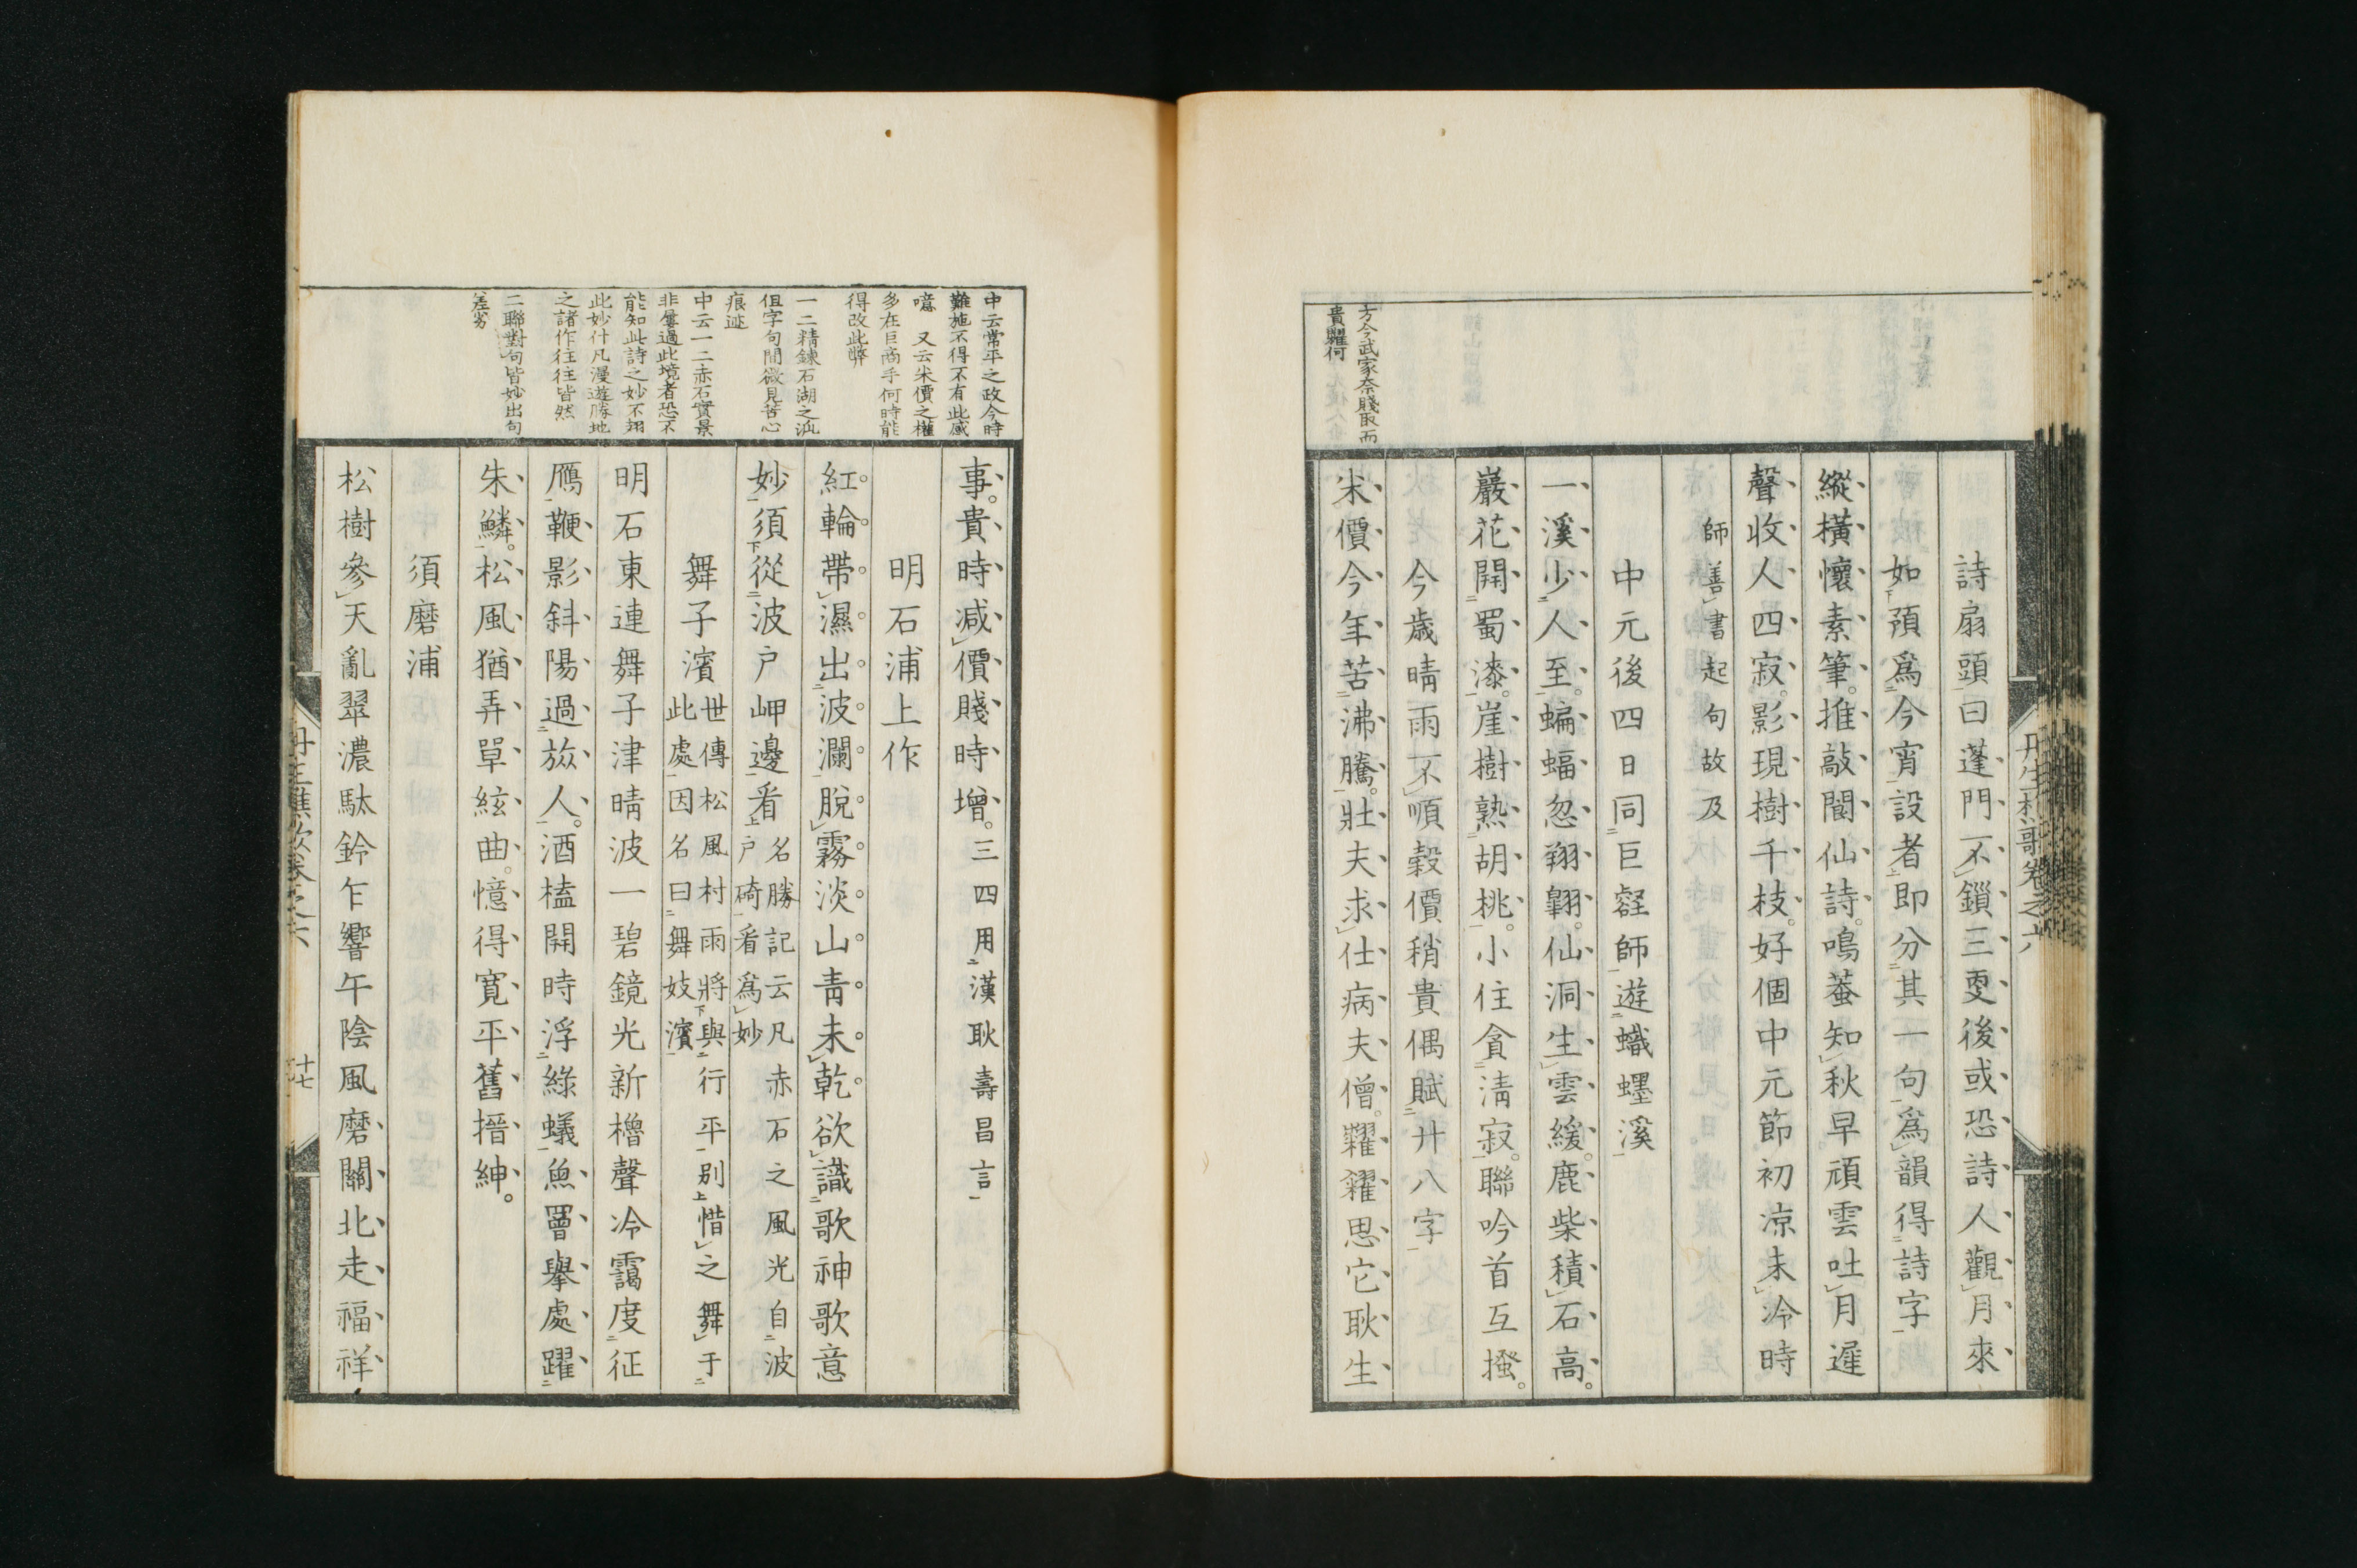 詩扇頭曰蓬門不鎖三更後或恐詩人觀月來
如預爲今宵設者即分其一句爲韻得詩字
縱橫懷素筆推敲閬仙詩鳴蛬知秋早頑雲吐月遲
聲收人四寂影現樹千枝好個中元節初凉未冷時
師善書起句故及
中元後四日同巨壑師遊蠘蟶溪
一溪少人至蝙蝠忽翔翺仙洞生雲緩鹿柴積石高
巖花開蜀漆崖樹熟胡桃小住貪清寂聯吟首互搔
今歲晴雨不順穀價稍貴偶賦廿八字
米價今年苦沸騰壯夫求仕病夫僧糶糴思它耿生
方今武家奈賤取而
貴糶何
丹生樵歌卷之六
中云常平之政今時
難施不得不有此感
噫　又云米價之權
多在巨商手何時能
得改此弊
一二精鍊石湖之派
但字句間微見苦心
痕迹
中云一二赤石實景
非屢過此境者恐不
能知此詩之妙不翅
此妙什凡漫遊勝地
之諸作往往皆然
二聯對句皆妙出句
差劣
事貴時減價賤時增三四用漢耿壽昌言
明石浦上作
紅輪帶濕出波瀾脫霧淡山靑未乾欲識歌神歌意
妙須從波戶岬邊看名勝記云凡赤石之風光自波
戶碕看爲妙
舞子濱世傳松風村雨將與行平別惜之舞于
此處因名曰舞妓濱
明石東連舞子津晴波一碧鏡光新櫓聲冷靄度征
鴈鞭影斜陽過旅人酒榼開時浮綠蟻魚罾擧處躍
朱鱗松風猶弄單絃曲憶得寛平舊搢紳
須磨浦
松樹參天亂翠濃馱鈴乍響午陰風磨關北走福祥
丹生樵歌卷之六
十七